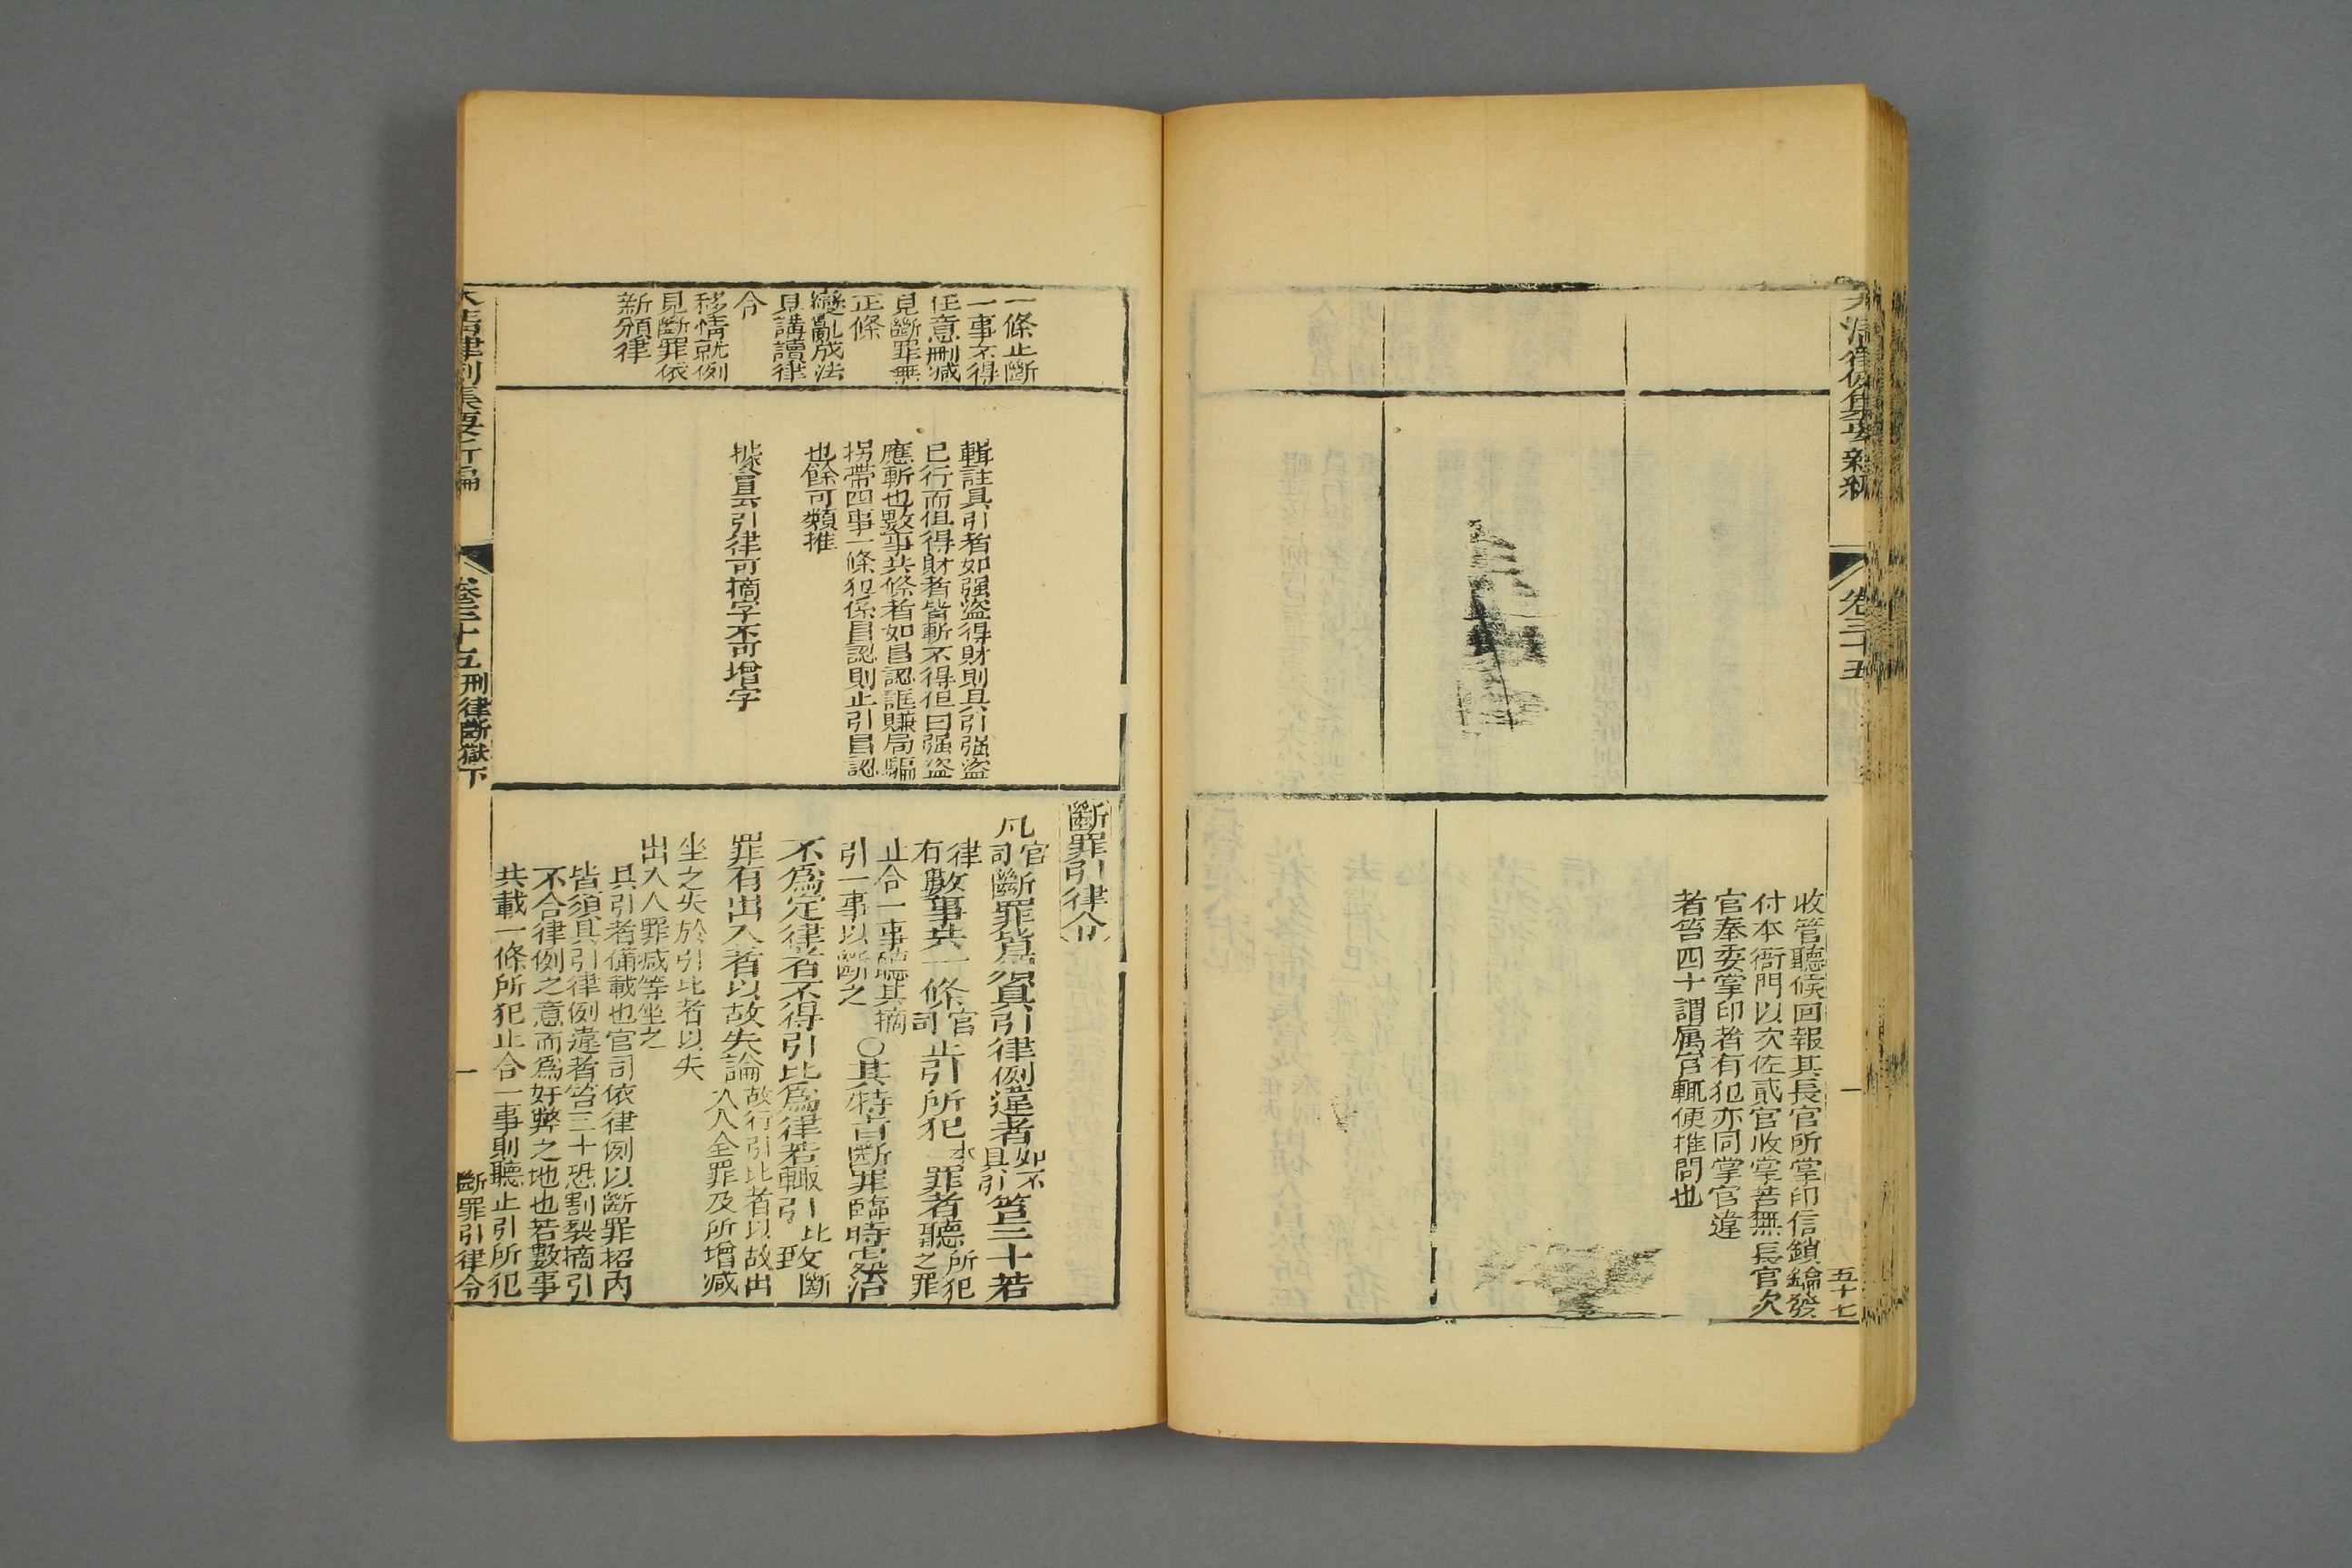 大清律例集要新編
卷三十五
五十七
收管聽候回報其長官所掌印信鎖鑰發
付本衙門以次佐貳官收掌若無長官次
官奉委掌印者有犯亦同掌官違
者笞四十謂属官輒便推問也
一條止斷
一事不得
任意刪減
見斷罪無
正條
變亂成法
見講讀律
令
移情就例
見斷罪依
新頒律
輯註具引者如强盜得財則具引强盜
已行而但得財者皆斬不得但曰强盜
應斬也數事共條者如冒認誆賺局騙
拐帶四事一條犯係冒認則止引冒認
也餘可類推
據會云引律可摘字不可增字
斷罪引律令
凡官司斷罪皆須具引律例違者如不具引笞三十若
律有數事共一條官司止引所犯本罪者聽所犯之罪
止合一事聽其摘引一事以斷之○其特旨斷罪臨時處治
不爲定律者不得引比爲律若輒引比致斷
罪有出入者以故失論故行引比者以故出入人全罪及所增減
坐之失於引比者以失
出入人罪減等坐之
具引者備載也官司依律例以斷罪招內
皆須具引律例違者笞三十恐割裂摘引
不合律例之意而爲奸弊之地也若數事
共載一條所犯止合一事則聽止引所犯
大清律例集要新編
卷三十五刑律斷獄下
一
斷罪引律令